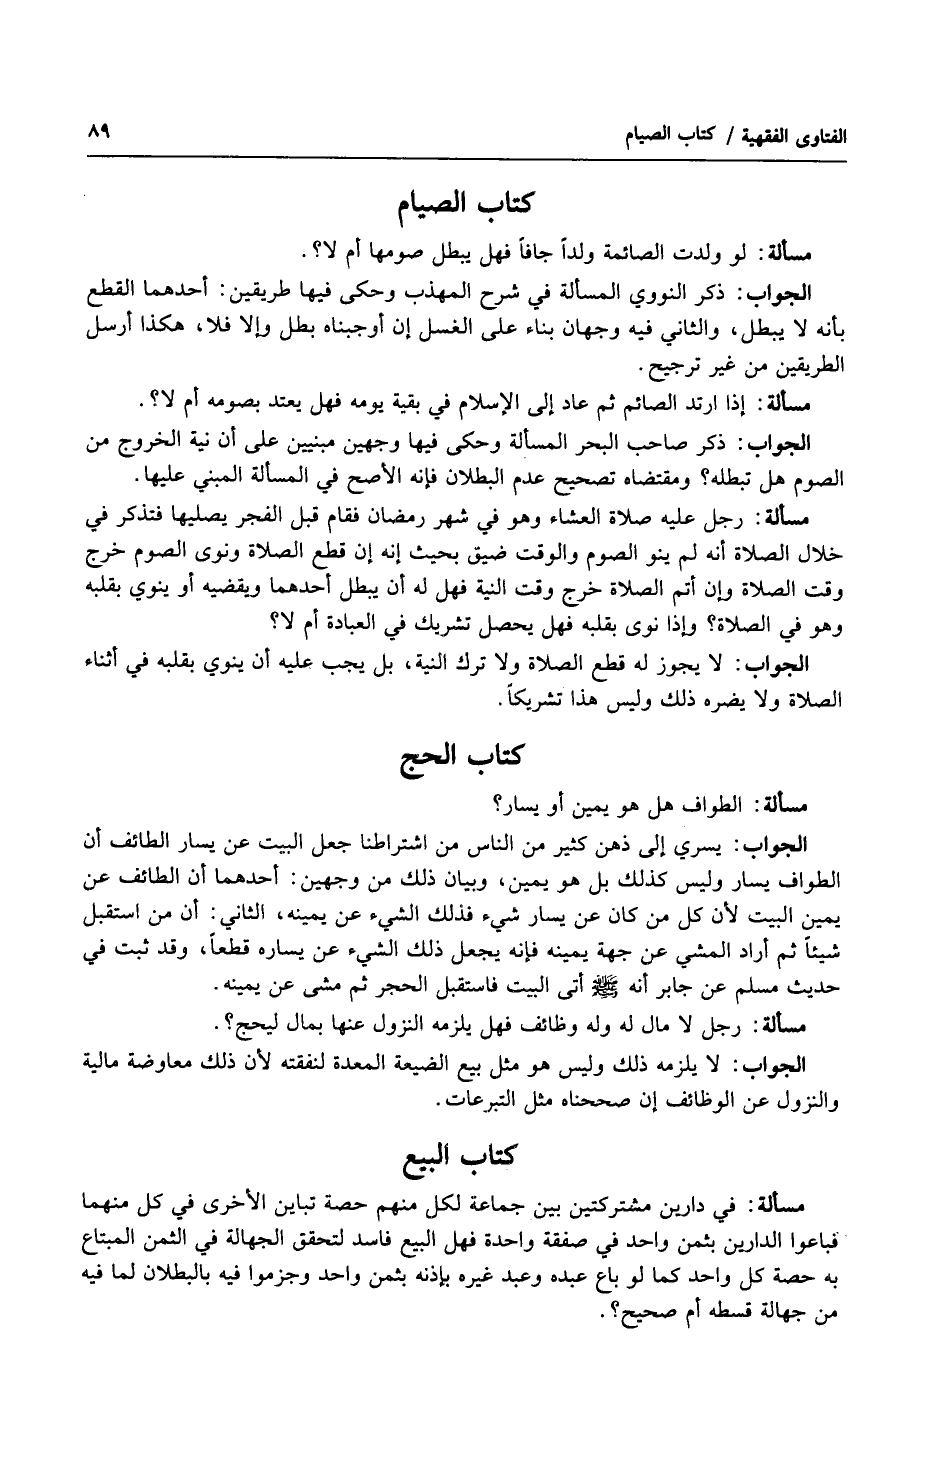 الفتاوى الفقهية / كتاب الصيام ٨٩
كتاب الصيام
مسألة: لو ولدت الصائمة ولداً جافاً فهل يبطل صومها أم لا؟.
الجواب: ذكر النووي المسألة في شرح المهذب وحكى فيها طريقين: أحدهما القطع
بأنه لا يبطل، والثاني فيه وجهان بناء على الغسل إن أوجبناه بطل وإلا فلا، هكذا أرسل
الطريقين من غير ترجيح.
مسألة: إذا ارتد الصائم ثم عاد إلى الإسلام في بقية يومه فهل يعتد بصومه أم لا؟.
الجواب: ذكر صاحب البحر المسألة وحكى فيها وجهين مبنيين على أن نية الخروج من
الصوم هل تبطله؟ ومقتضاه تصحيح عدم البطلان فإنه الأصح في المسألة المبني عليها.
مسألة: رجل عليه صلاة العشاء وهو في شهر رمضان فقام قبل الفجر يصليها فتذكر في
خلال الصلاة أنه لم ينو الصوم والوقت ضيق بحيث إنه إن قطع الصلاة ونوى الصوم خرج
وقت الصلاة وإن أتم الصلاة خرج وقت النية فهل له أن يبطل أحدهما ويقضيه أو ينوي بقلبه
وهو في الصلاة؟ وإذا نوى بقلبه فهل يحصل تشريك في العبادة أم لا؟
الجواب: لا يجوز له قطع الصلاة ولا ترك النية، بل يجب عليه أن ينوي بقلبه في أثناء
الصلاة ولا يضره ذلك وليس هذا تشريكاً.
كتاب الحج
مسألة: الطواف هل هو يمين أو يسار؟
الجواب: يسري إلى ذهن كثير من الناس من اشتراطنا جعل البيت عن يسار الطائف أن
الطواف يسار وليس كذلك بل هو يمين، وبيان ذلك من وجهين: أحدهما أن الطائف عن
يمين البيت لأن كل من كان عن يسار شيء فذلك الشيء عن يمينه، الثاني: أن من استقبل
شيئاً ثم أراد المشي عن جهة يمينه فإنه يجعل ذلك الشيء عن يساره قطعاً، وقد ثبت في
حديث مسلم عن جابر أنه ﷺ أتى البيت فاستقبل الحجر ثم مشى عن يمينه.
مسألة: رجل لا مال له وله وظائف فهل يلزمه النزول عنها بمال ليحج؟.
الجواب: لا يلزمه ذلك وليس هو مثل بيع الضيعة المعدة لنفقته لأن ذلك معاوضة مالية
والنزول عن الوظائف إن صححناه مثل التبرعات.
كتاب البيع
مسألة: في دارين مشتركتين بين جماعة لكل منهم حصة تباين الأخرى في كل منهما
فباعوا الدارين بثمن واحد في صفقة واحدة فهل البيع فاسد لتحقق الجهالة في الثمن المبتاع
به حصة كل واحد كما لو باع عبده وعبد غيره بإذنه بثمن واحد وجزموا فيه بالبطلان لما فيه
من جهالة قسطه أم صحيح؟.